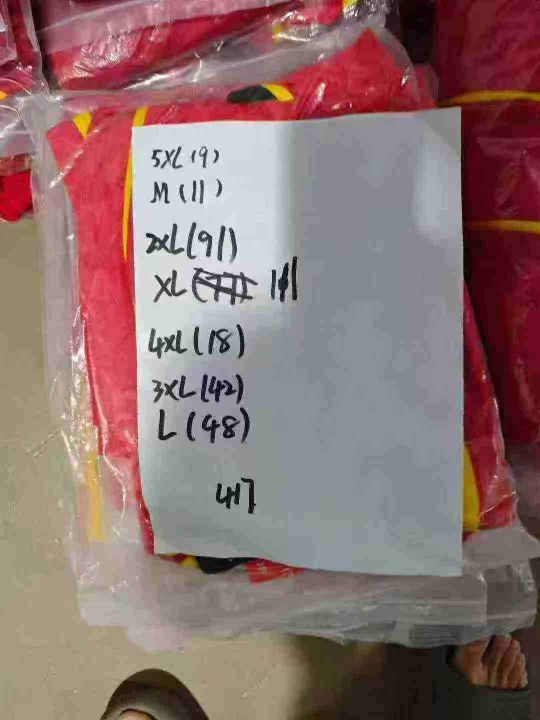 5XL (9)
M (11)
2XL (91)
XL 111
4XL (18)
3XL (42)
L (48)
417